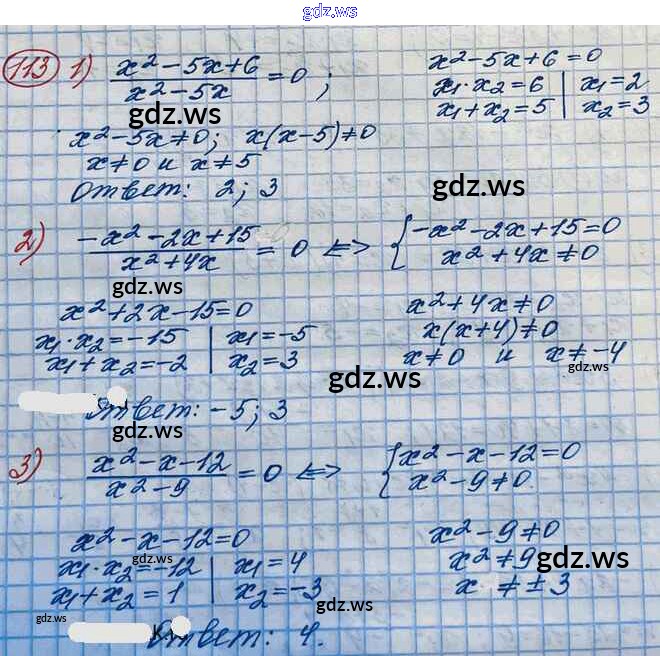 gdz.ws
113 1) x²-5x+6 / x²-5x = 0;
x²-5x+6=0
x₁·x₂=6 | x₁=2
x₁+x₂=5 | x₂=3
gdz.ws
x²-5x≠0; x(x-5)≠0
x≠0 и x≠5
Ответ: 2; 3
gdz.ws
2) -x²-2x+15 / x²+4x = 0 <=> { -x²-2x+15=0
x²+4x≠0
gdz.ws
x²+2x-15=0
x₁·x₂=-15 | x₁=-5
x₁+x₂=-2 | x₂=3
x²+4x≠0
x(x+4)≠0
x≠0 и x≠-4
gdz.ws
gdz.ws
Ответ: -5; 3
gdz.ws
3) x²-x-12 / x²-9 = 0 <=> { x²-x-12=0
x²-9≠0.
x²-x-12=0
gdz.ws
x₁·x₂=-12 | x₁=4
x₁+x₂=1 | x₂=-3
x²-9≠0
x²≠9
gdz.ws
x≠±3
gdz.ws
gdz.ws
Ответ: 4.